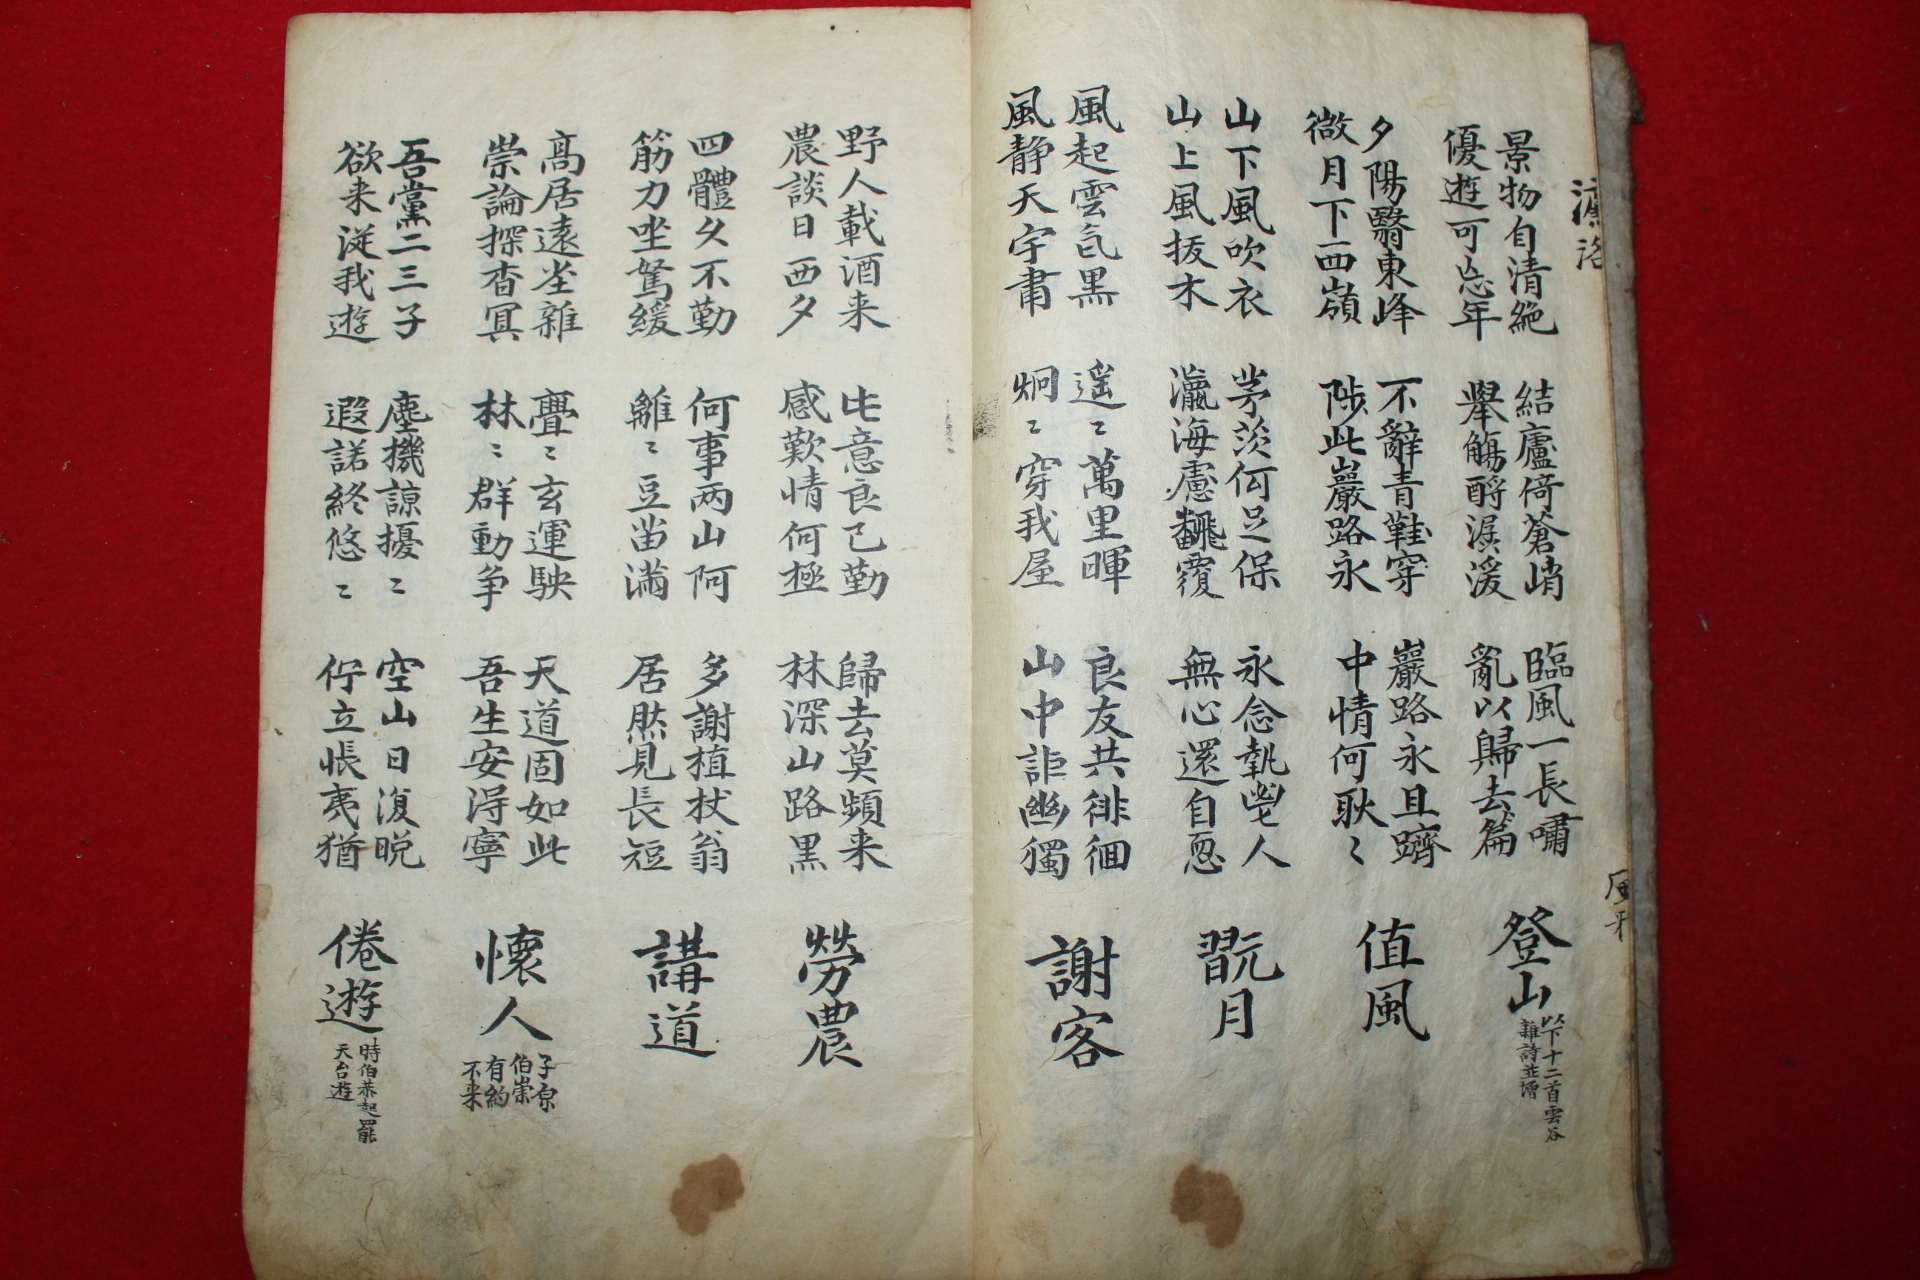 濂洛
風雅
景物自清絶
優遊可忘年
結廬倚蒼峭
舉觴酹潺湲
臨風一長嘯
亂以歸去篇
登山
以下十二首雲谷
雜詩並增
夕陽翳東峰
微月下西嶺
不辭青鞋穿
陟此巖路永
巖路永且躋
中情何耿〻
值風
山下風吹衣
山上風拔木
茅茨何足保
瀛海慮飜覆
永念執鬯人
無心還自恧
翫月
風起雲氣黑
風静天宇肅
遥〻萬里暉
炯〻穿我屋
良友共徘徊
山中詎幽獨
謝客
野人載酒来
農談日西夕
此意良已勤
感歎情何極
歸去莫頻来
林深山路黑
勞農
四體久不勤
筋力坐駑緩
何事兩山阿
離〻豆苗滿
多謝植杖翁
居然見長短
講道
高居遠塵雜
崇論探杳冥
亹〻玄運駛
林〻群動争
天道固如此
吾生安得寧
懷人
子原
伯崇
有約
不来
吾黨二三子
欲来従我遊
塵機諒擾〻
遐諾終悠〻
空山日復晩
佇立悵夷猶
倦遊
時伯恭起罷
天台遊